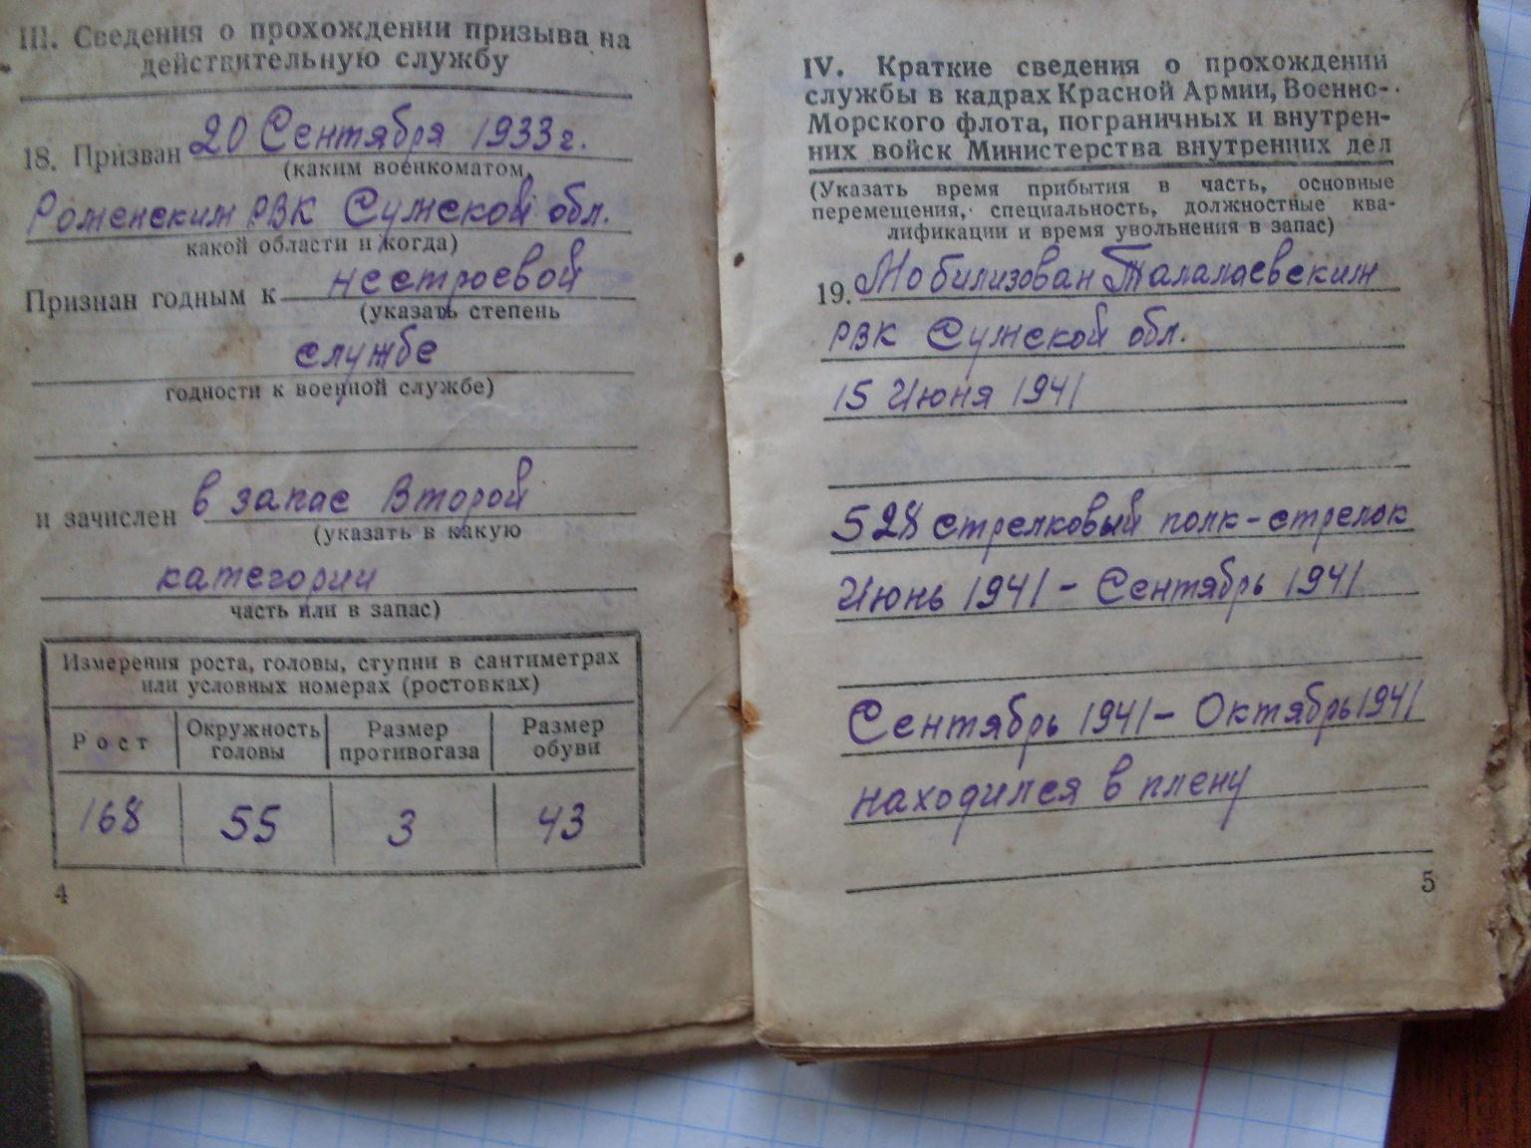 III. Сведения о прохождении призыва на
действительную службу
18. Призван 20 Сентября 1933 г.
(каким военкоматом,
Роменским РВК Сумской обл.
какой области и когда)
Признан годным к нестроевой
(указать степень
службе
годности к военной службе)
и зачислен в запас Второй
(указать в какую
категории
часть или в запас)
Измерения роста, головы, ступни в сантиметрах
или условных номерах (ростовках)
Рост Окружность головы Размер противогаза Размер обуви
168 55 3 43
4
IV. Краткие сведения о прохождении
службы в кадрах Красной Армии, Военно-
Морского флота, пограничных и внутрен-
них войск Министерства внутренних дел
(Указать время прибытия в часть, основные
перемещения, специальность, должностные ква-
лификации и время увольнения в запас)
19. Мобилизован Талалаевским
РВК Сумской обл.
15 Июня 1941
528 стрелковый полк-стрелок
Июнь 1941 - Сентябрь 1941
Сентябрь 1941 - Октябрь 1941
находился в плену
5